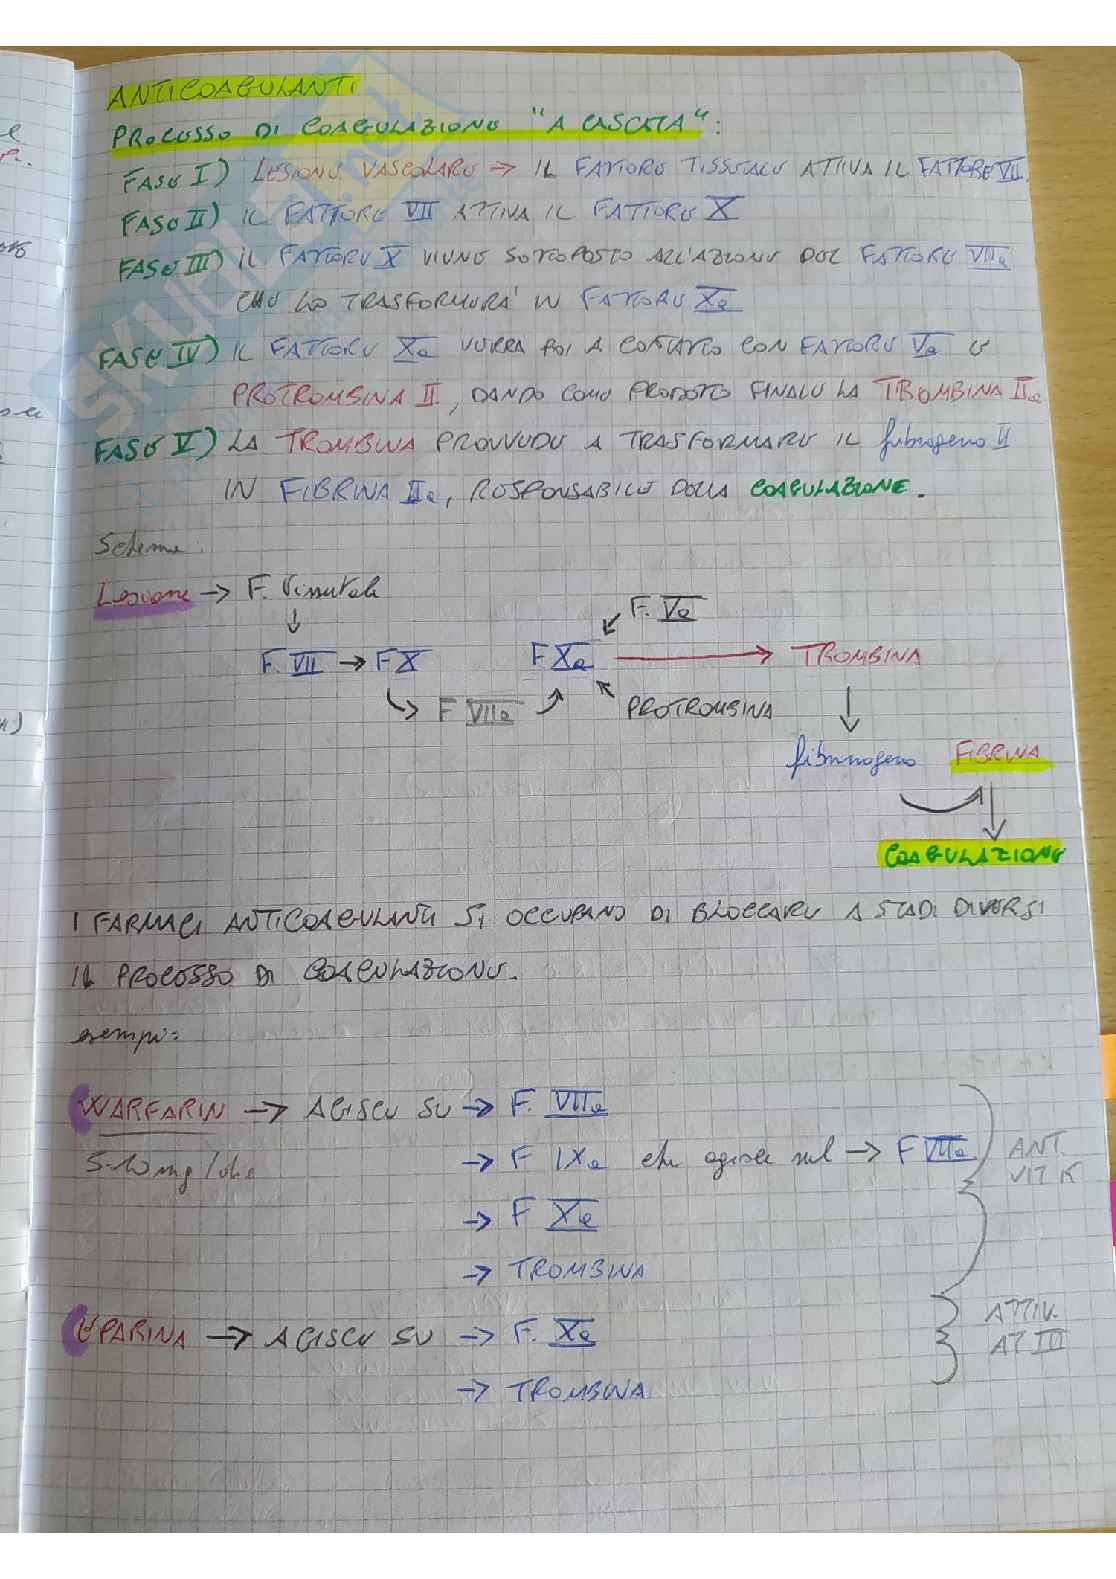 ANTICOAGULANTI
PROCESSO DI COAGULAZIONE "A CASCATA":
FASE I) LESIONE VASCOLARE → IL FATTORE TISSUTALE ATTIVA IL FATTORE VII.
FASE II) IL FATTORE VII ATTIVA IL FATTORE X
FASE III) IL FATTORE X VIENE SOTTOPOSTO ALL'AZIONE DEL FATTORE VIIa
CHE LO TRASFORMERA' IN FATTORE Xa
FASE IV) IL FATTORE Xa VERRA POI A CONTATTO CON FATTORE Va E
PROTROMBINA II, DANDO COME PRODOTTO FINALE LA TROMBINA IIa
FASE V) LA TROMBINA PROVVEDE A TRASFORMARE IL fibrogeno II
IN FIBRINA IIa, RESPONSABILE DELLA COAGULAZIONE.
Schema:
Lesione → F. Tissutale
↓
F. Va
F. VII → F X
F Xa → TROMBINA
F VIIa
PROTROMBINA
fibrinogeno FIBRINA
COAGULAZIONE
I FARMACI ANTICOAGULANTI SI OCCUPANO DI BLOCCARE A STADI DIVERSI
IL PROCESSO DI COAGULAZIONE.
esempi:
WARFARIN → AGISCE SU → F. VIIa
5-10mg/die → F IXa che agisce sul → F VIIa
ANT. VIT K
→ F Xa
→ TROMBINA
EPARINA → AGISCE SU → F. Xa
ATTIV. AT III
→ TROMBINA